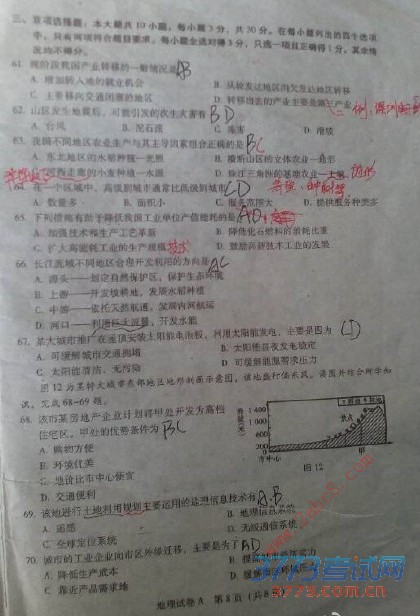 三、双项选择题：本大题共10小题，每小题3分，共30分。在每小题列出的四个选
项中，只有两项符合题目要求，每小题全选对得3分，只选一项且正确得1分，其余
情况均不得分。
61. 现阶段我国产业转移的一般情况是 AB
A. 增加转入地的就业机会 B. 从较发达地区向欠发达地区转移
C. 主要移向交通闭塞的地区 D. 转移出去的产业主要是第三产业
62. 山区发生地震后，可能引发的次生灾害有 BD
A. 台风 B. 泥石流 C. 冻害 D. 滑坡
63. 我国不同地区农业生产与其主导因素组合正确的是 BC
A. 东北地区的水稻种植—光照 B. 横断山区的立体农业—地形
C. 河西走廊的小麦种植—水源 D. 珠江三角洲的基塘农业—土壤 地形
64. 在一个区域中，高级别城市通常比低级别城市 CD
A. 数量多 B. 面积小 C. 服务范围大 D. 提供服务种类多
65. 下列措施有助于降低我国工业单位产值能耗的是 AD
A. 加强技术和生产工艺革新 B. 降低化石燃料的消耗比重
C. 扩大高能耗工业的生产规模 D. 鼓励高新技术工业的发展
66. 长江流域不同地区合理开发利用的方向是 AC
A. 源头——划定自然保护区，保护生态环境
B. 上游——开发坡耕地，发展水稻种植
C. 中游——依托天然航道，发展内河航运
D. 河口——利用巨大流量，开发水能
67. 某大城市推广在屋顶安装太阳能电池板，利用太阳能发电，主要是因为 CD
A. 可缓解城市交通拥堵 B. 太阳能昼夜发电稳定
C. 太阳能清洁、无污染 D. 可缓解能源需求压力
图12为某特大城市东部地区地形剖面示意图，该地盛行偏东风。读图并结合所学知
识，完成68~69题。
68. 该市某房地产企业计划将甲处开发为高档
住宅区，甲处的优势条件为 BC
A. 购物方便
B. 环境优美
C. 地价比市中心便宜
D. 交通便利
1 400
1 000
600
200
市中心
甲
图12
69. 该地进行土地利用规划主要运用的地理信息技术有 A.B
A. 遥感 B. 地理信息系统
C. 全球定位系统 D. 无线通信系统
70. 城市的工业企业向市区外缘迁移，主要是为了 AD
A. 降低生产成本
C. 靠近产品需求地
地理试卷A 第8页（共8页）
7773考试网